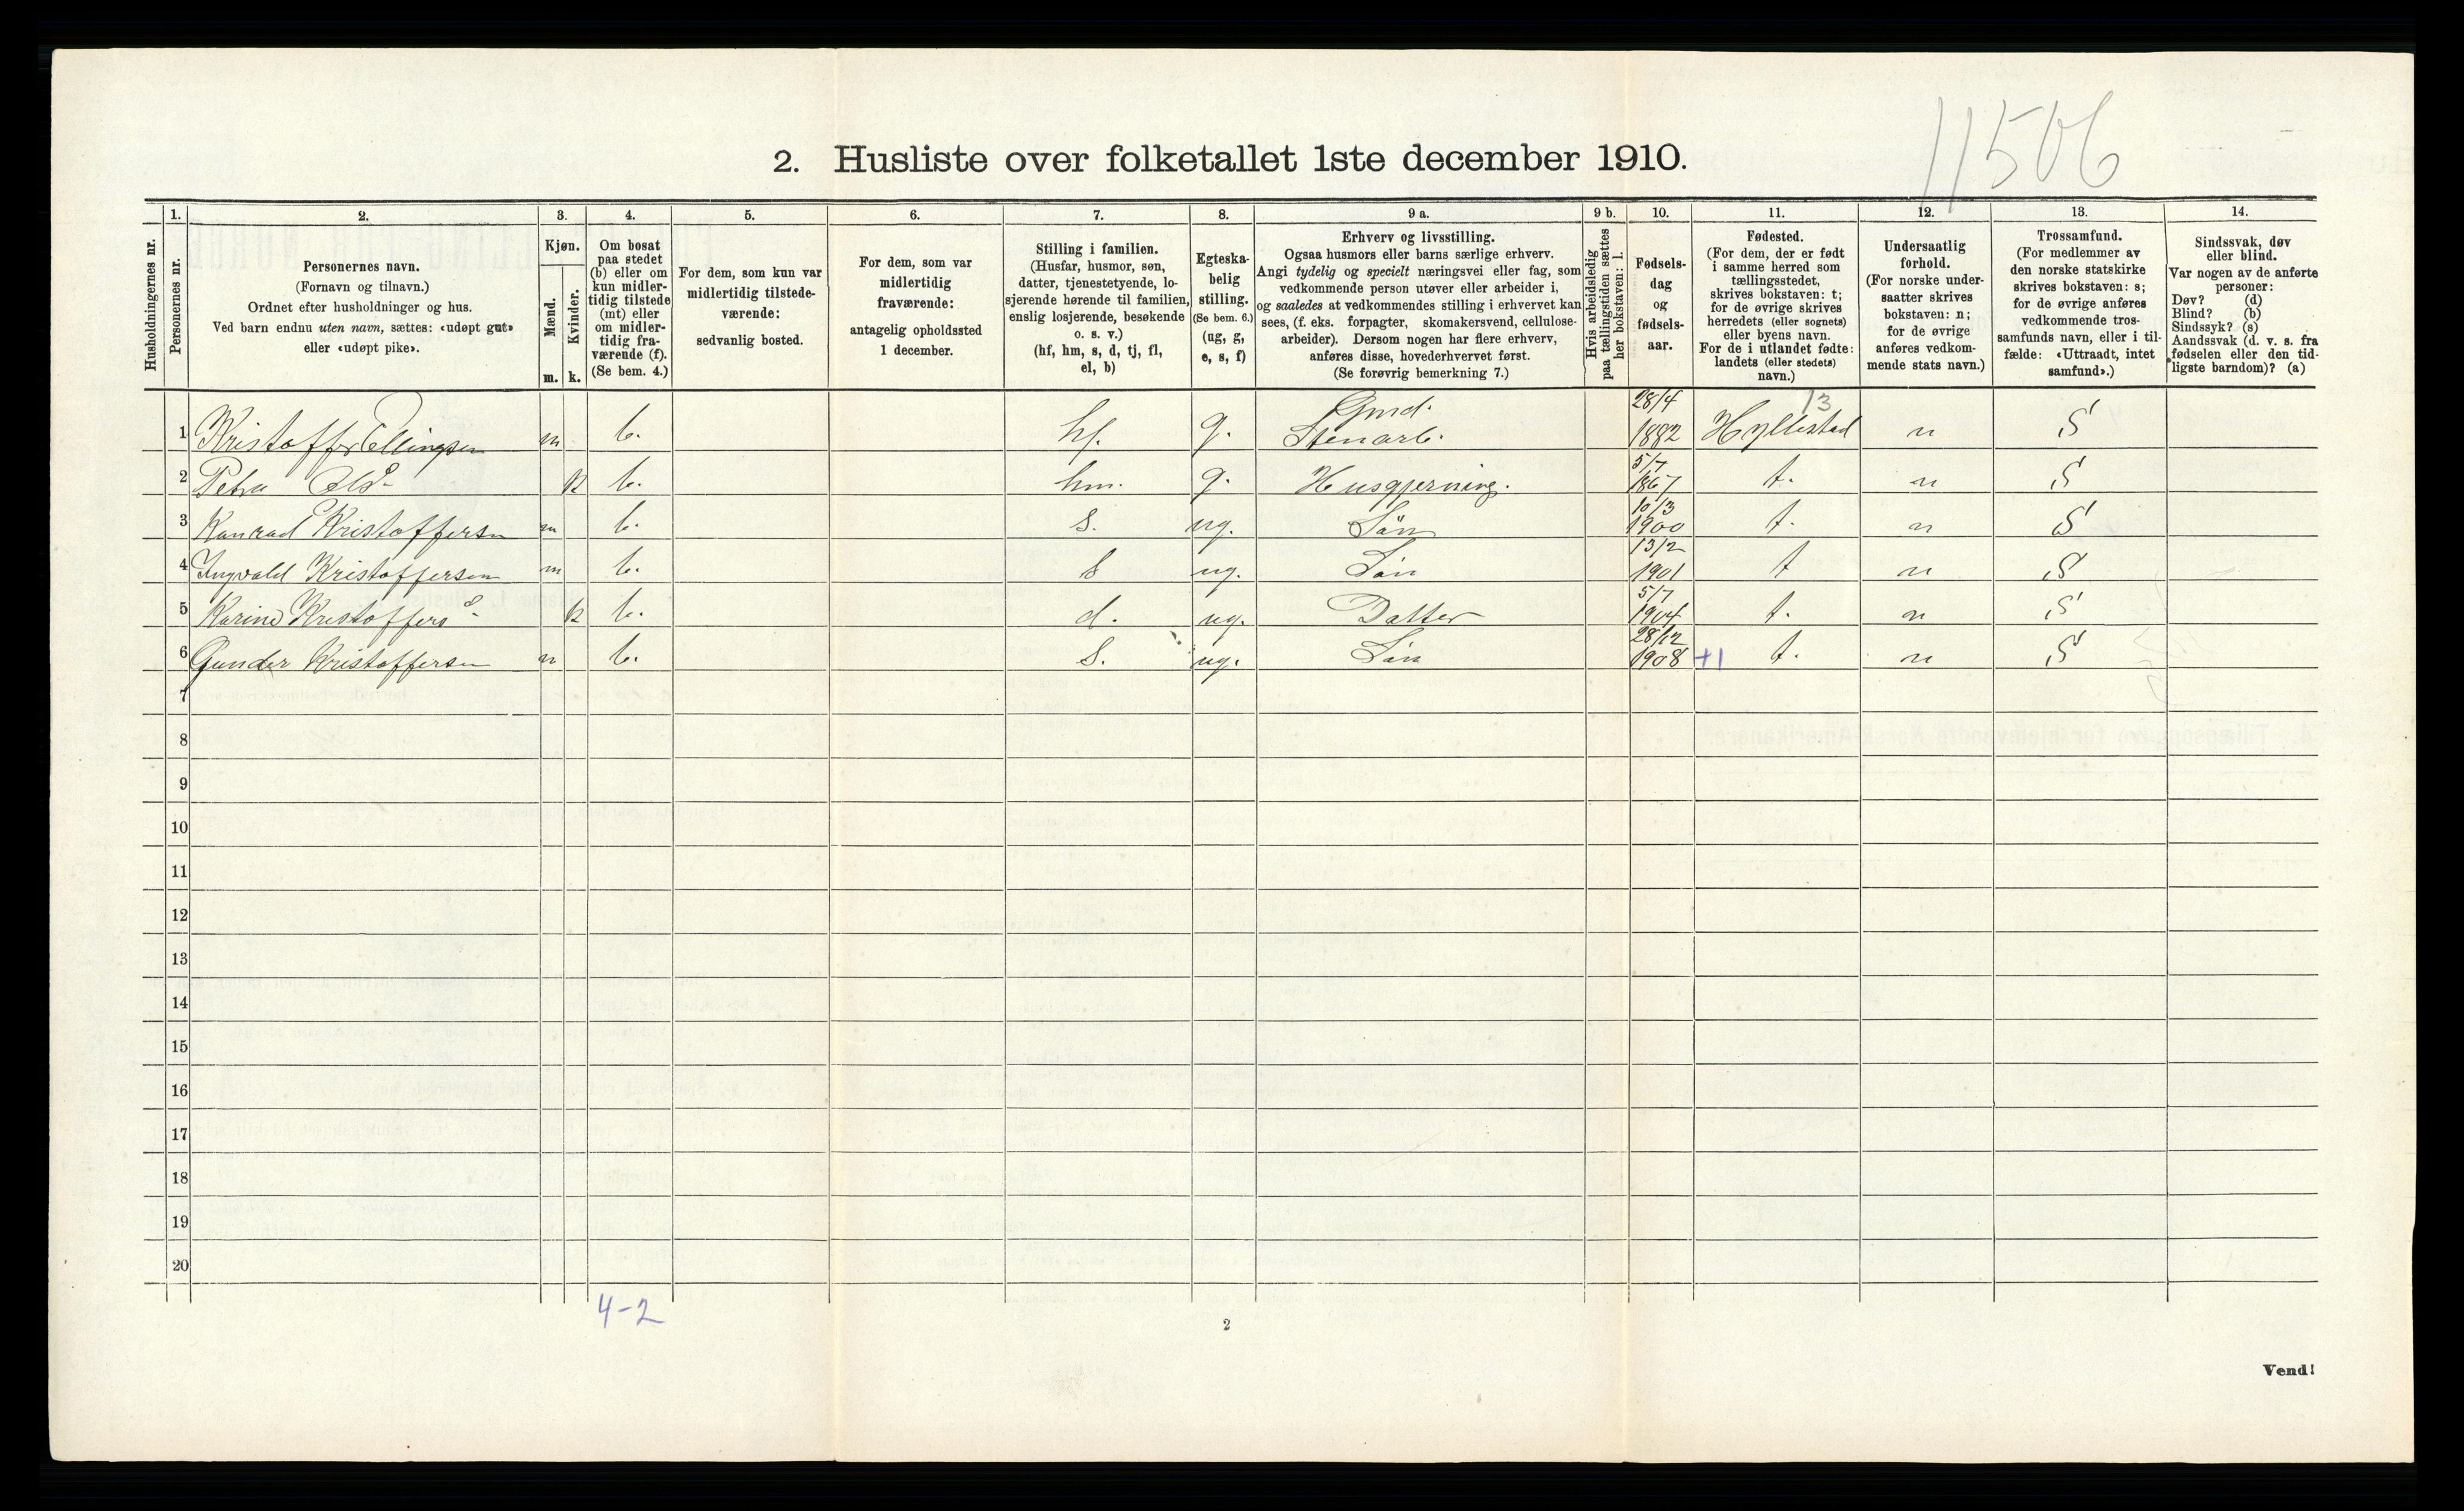 11506
2. Husliste over folketallet 1ste december 1910.
Husholdningernes nr.
1.
Personernes nr.
2.
Personernes navn.
(Fornavn og tilnavn.)
Ordnet efter husholdninger og hus.
Ved barn endnu uten navn, sættes: «udøpt gut»
eller «udøpt pike».
3.
Kjøn.
Mænd.
Kvinder.
m. k.
4.
Om bosat
paa stedet
(b) eller om
kun midler-
tidig tilstede
(mt) eller
om midler-
tidig fra-
værende (f).
(Se bem. 4.)
5.
For dem, som kun var
midlertidig tilstede-
værende:
sedvanlig bosted.
6.
For dem, som var
midlertidig
fraværende:
antagelig opholdssted
1 december.
7.
Stilling i familien.
(Husfar, husmor, søn,
datter, tjenestetyende, lo-
sjerende hørende til familien,
enslig losjerende, besøkende
o. s. v.)
(hf, hm, s, d, tj, fl,
el, b)
8.
Egteska-
belig
stilling.
(Se bem. 6.)
(ug, g,
e, s, f)
9 a.
Erhverv og livsstilling.
Ogsaa husmors eller barns særlige erhverv.
Angi tydelig og specielt næringsvei eller fag, som
vedkommende person utøver eller arbeider i,
og saaledes at vedkommendes stilling i erhvervet kan
sees, (f. eks. forpagter, skomakersvend, cellulose-
arbeider). Dersom nogen har flere erhverv,
anføres disse, hovederhvervet først.
(Se forøvrig bemerkning 7.)
9 b.
Hvis arbeidsledig
paa tællingstiden sættes
her bokstaven: l.
10.
Fødsels-
dag
og
fødsels-
aar.
11.
Fødested.
(For dem, der er født
i samme herred som
tællingsstedet,
skrives bokstaven: t;
for de øvrige skrives
herredets (eller sognets)
eller byens navn.
For de i utlandet fødte:
landets (eller stedets)
navn.)
12.
Undersaatlig
forhold.
(For norske under-
saatter skrives
bokstaven: n;
for de øvrige
anføres vedkom-
mende stats navn.)
13.
Trossamfund.
(For medlemmer av
den norske statskirke
skrives bokstaven: s;
for de øvrige anføres
vedkommende tros-
samfunds navn, eller i til-
fælde: «Uttraadt, intet
samfund».)
14.
Sindssvak, døv
eller blind.
Var nogen av de anførte
personer:
Døv? (d)
Blind? (b)
Sindssyk? (s)
Aandssvak (d. v. s. fra
fødselen eller den tid-
ligste barndom)? (a)
Gmd. 28/4 13
1 Kristoffer Ellingsen m b. hf. g. Stenarb. 1882 Hyllestad n S
5/7
2 Petra k b. hm. g. Husgjerning. 1867 t. n S
10/3
3 Konrad Kristoffersen m b. s. ug. Sön 1900 t. n S
13/2
4 Ingvald Kristoffersen m b. s ug. Sön 1901 t n S
5/7
5 Karine Kristoffers d- k b. d. ug. Datter 1904 t. n S
28/12
6 Gunder Kristoffersen m b. s. ug. Sön 1908 +1 t. n S
7
8
9
10
11
12
13
14
15
16
17
18
19
20
4-2
2
Vend!